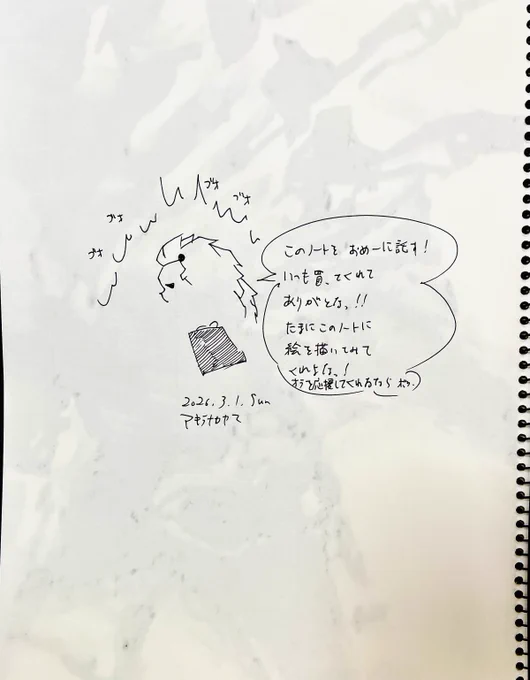 ブオ
ブオ
ブオ
ブオ
このノートを おめーに託す!
いつも買ってくれて
ありがとなっ!!
たまにこのノートに
絵を描いてみて
くれよなっ!
オラを応援してくれるなら
2026.3.1.Sun
アキラナカヤマ